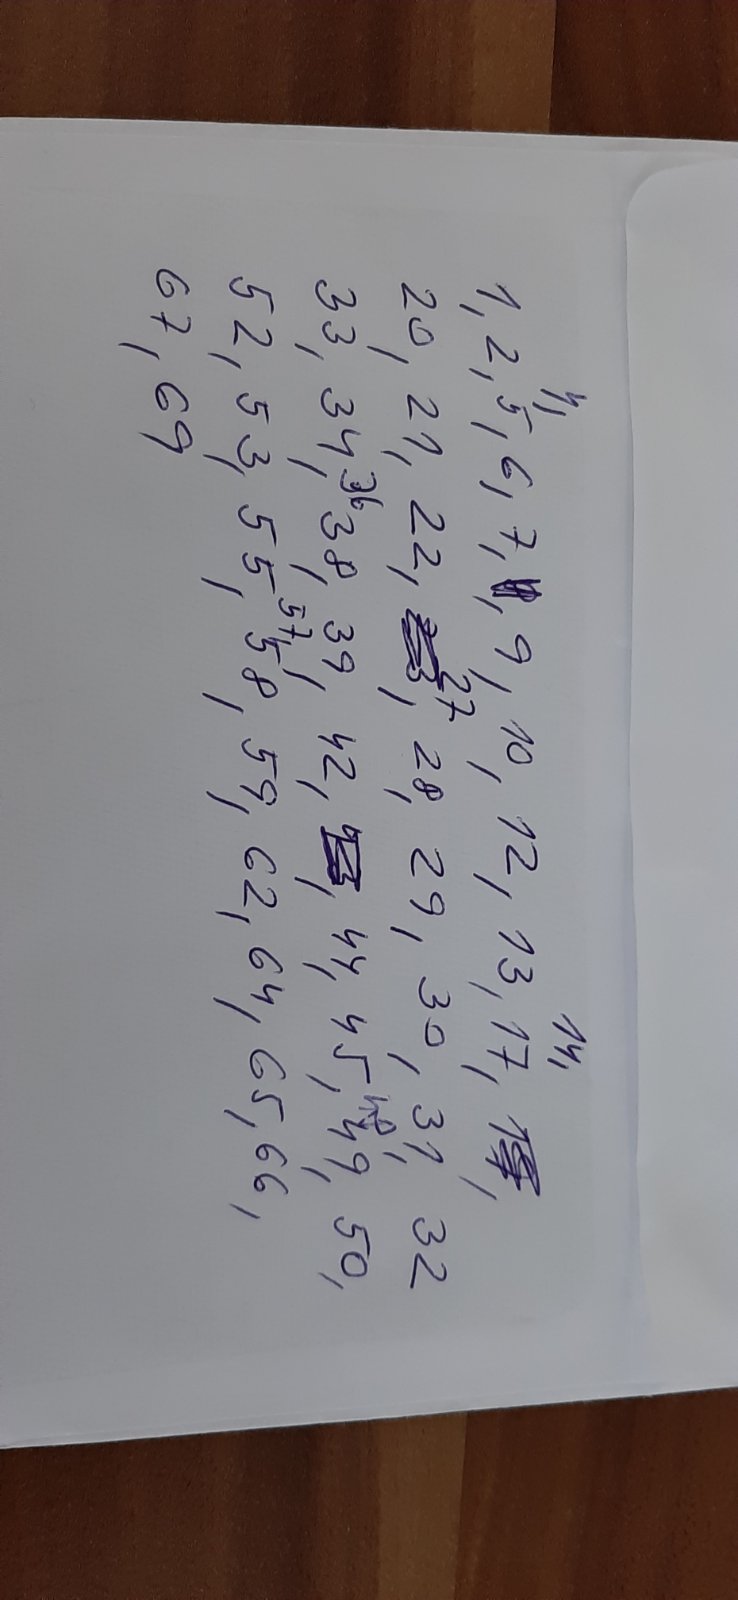 1, 2, 4, 5, 6, 7, 9, 10, 12, 13, 14, 17,
20, 21, 22, 27, 28, 29, 30, 31, 32
33, 34, 36 38, 39, 42, 44, 45, 48, 49, 50,
52, 53, 55, 57, 58, 59, 62, 64, 65, 66,
67, 69